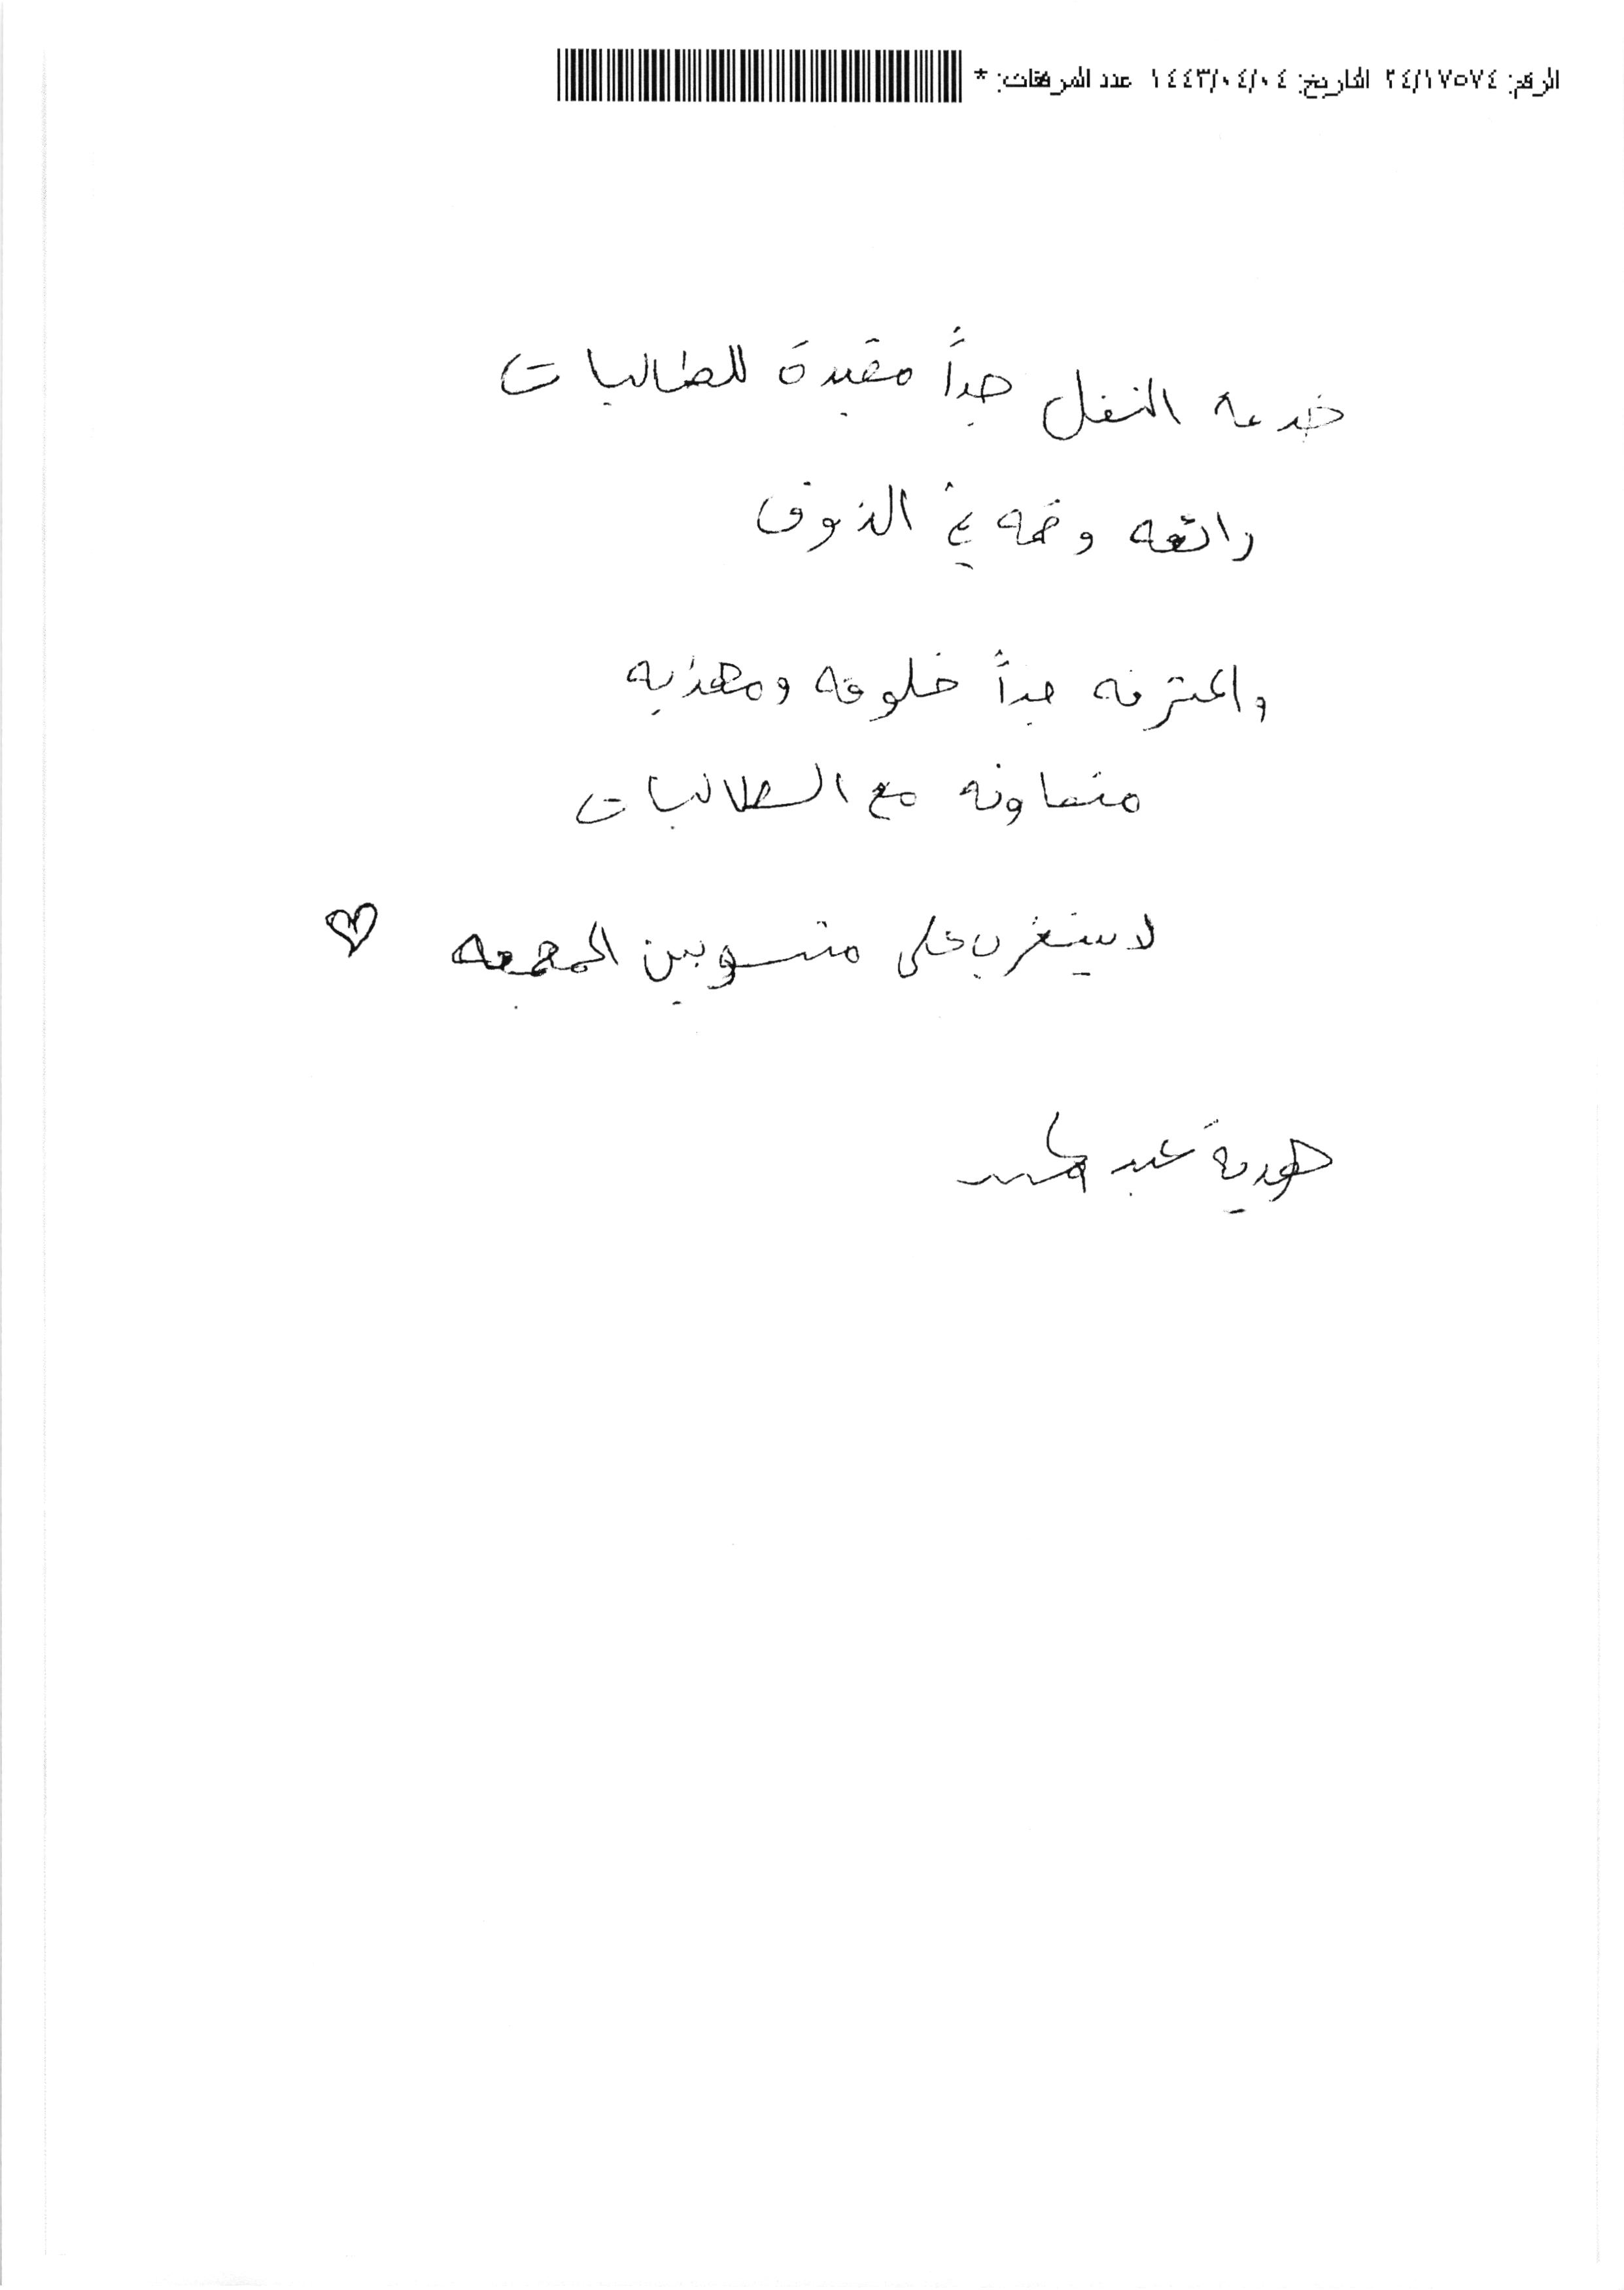 الرقم: ٢٤/١٧٥٧٤ التاريخ: ١٤٤٣/٠٤/٠٤ عدد المرفقات: *
خدمه النقل جداً مفيدة للطالبات
رائعه وقمه في الذوق
والمشرفه جداً خلوقه ومهذبه
متعاونه مع الطالبات
لا يستغرب على منسوبين المجمعه ♡
حورية عبد